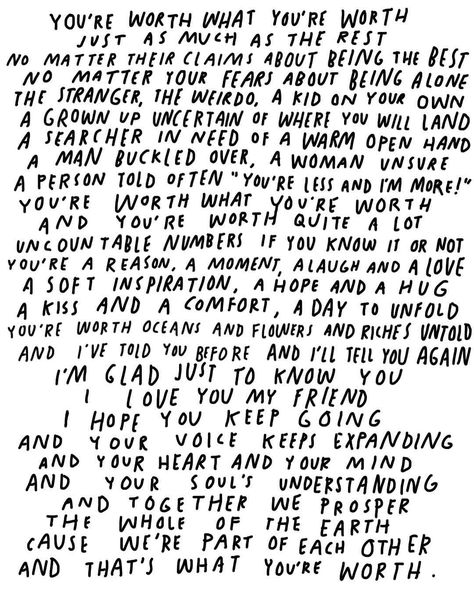 YOU'RE WORTH WHAT YOU'RE WORTH
JUST AS MUCH AS THE REST
NO MATTER THEIR CLAIMS ABOUT BEING THE BEST
NO MATTER YOUR FEARS ABOUT BEING ALONE
THE STRANGER, THE WEIRDO, A KID ON YOUR OWN
A GROWN UP UNCERTAIN OF WHERE YOU WILL LAND
A SEARCHER IN NEED OF A WARM OPEN HAND
A MAN BUCKLED OVER, A WOMAN UNSURE
A PERSON TOLD OFTEN "YOU'RE LESS AND I'M MORE!"
YOU'RE WORTH WHAT YOU'RE WORTH
AND YOU'RE WORTH QUITE A LOT
UNCOUNTABLE NUMBERS IF YOU KNOW IT OR NOT
YOU'RE A REASON, A MOMENT, A LAUGH AND A LOVE
A SOFT INSPIRATION, A HOPE AND A HUG
A KISS AND A COMFORT, A DAY TO UNFOLD
YOU'RE WORTH OCEANS AND FLOWERS AND RICHES UNTOLD
AND I'VE TOLD YOU BEFORE AND I'LL TELL YOU AGAIN
I'M GLAD JUST TO KNOW YOU
I LOVE YOU MY FRIEND
I HOPE YOU KEEP GOING
AND YOUR VOICE KEEPS EXPANDING
AND YOUR HEART AND YOUR MIND
AND YOUR SOUL'S UNDERSTANDING
AND TOGETHER WE PROSPER
THE WHOLE OF THE EARTH
CAUSE WE'RE PART OF EACH OTHER
AND THAT'S WHAT YOU'RE WORTH.